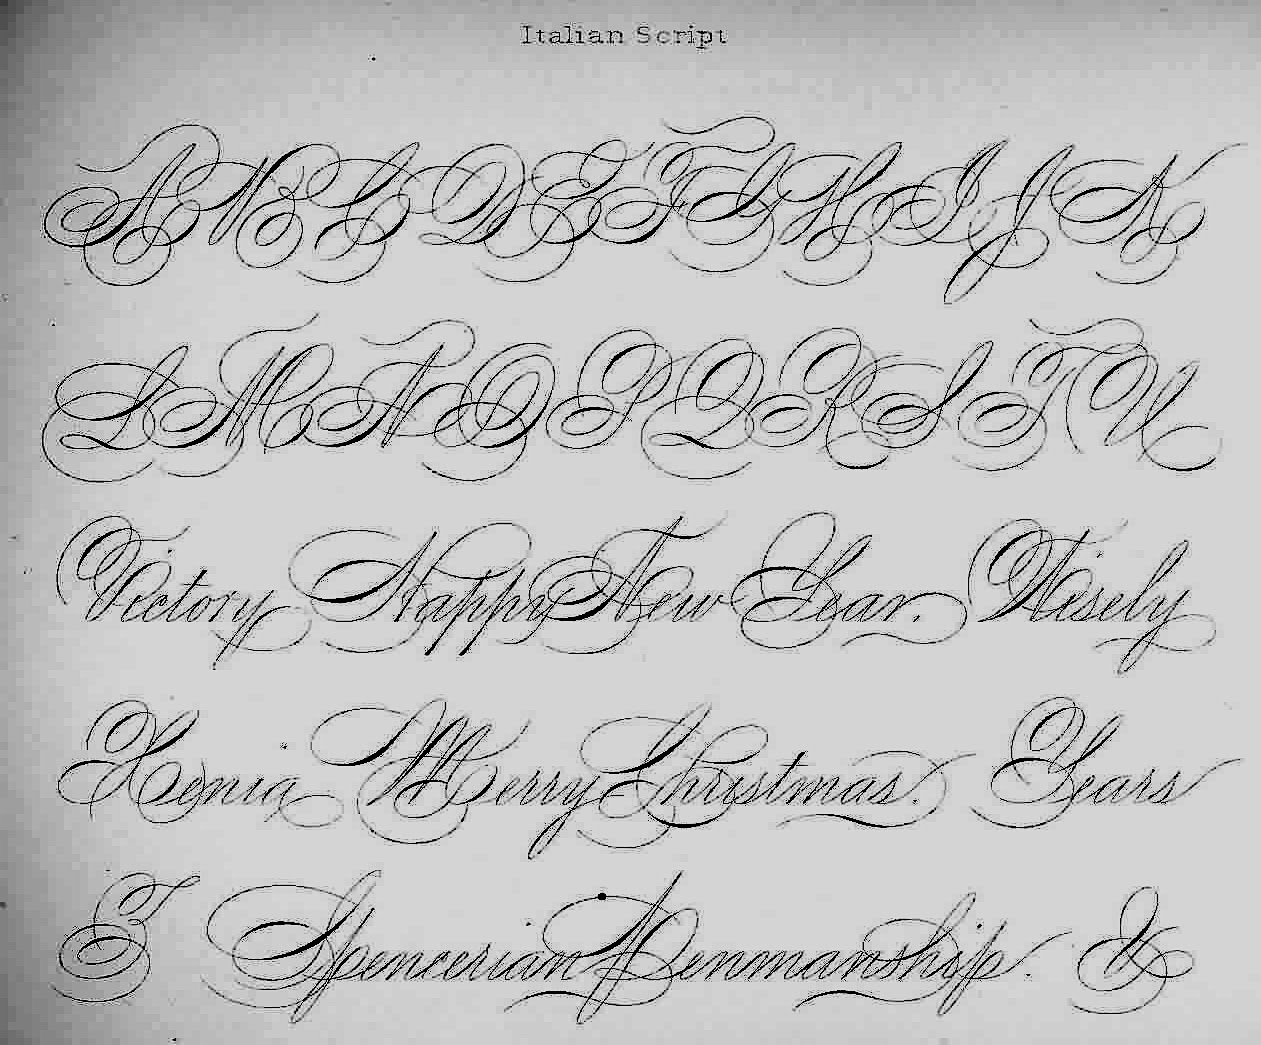 Italian Script
A B C D E F G H I J K
L M N O P Q R S T U
Victory Happy New Year. Wisely
Xenia Merry Christmas. Years
Z Spencerian Penmanship. &